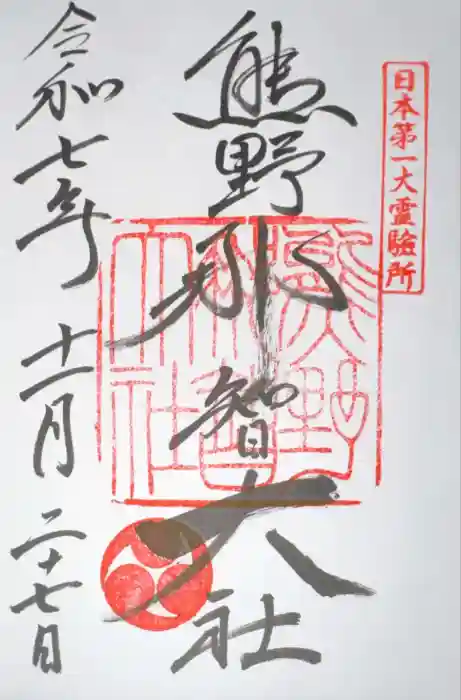 日本第一大霊験所
熊野那智大社
熊野那智大社
令和七年十一月二十七日